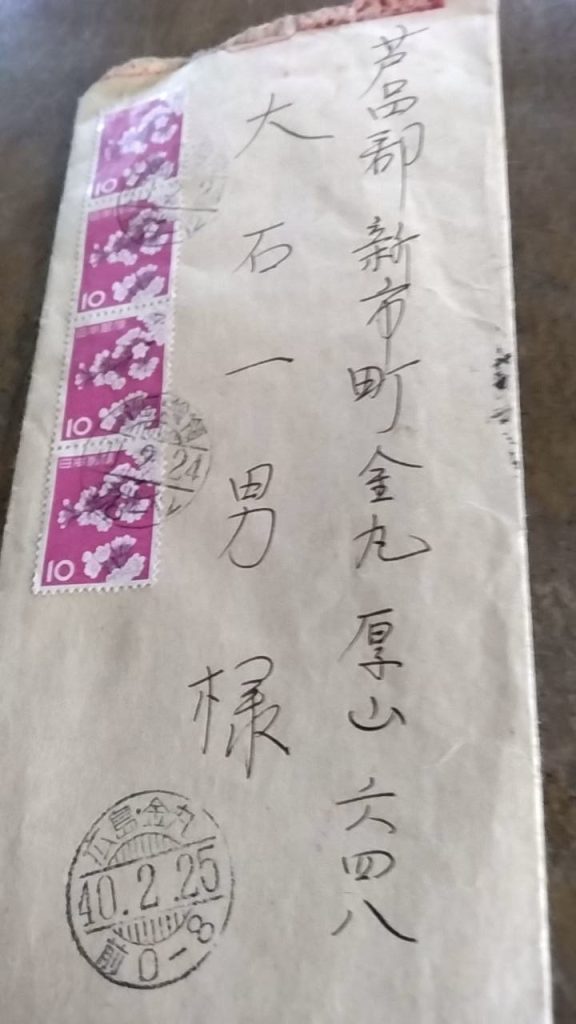 芦品郡新市町金丸厚山六四八
大石一男様
10
10
日本郵便
10
日本郵便
10
24
広島・金丸
40.2.25
前0-8